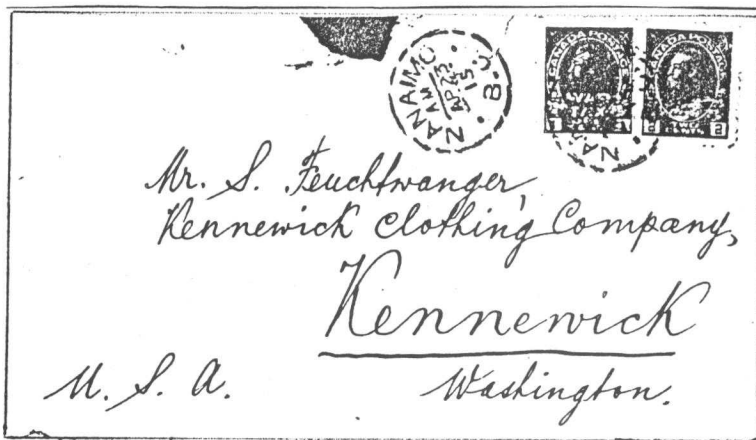 NANAIMO B.C.
AM
AP 22
15
CANADA POSTAGE
1 1
CANADA POSTAGE
2 2
NA
Mr. S. Feuchtwanger,
Kennewick Clothing Company,
Kennewick
U. S. A. Washington.